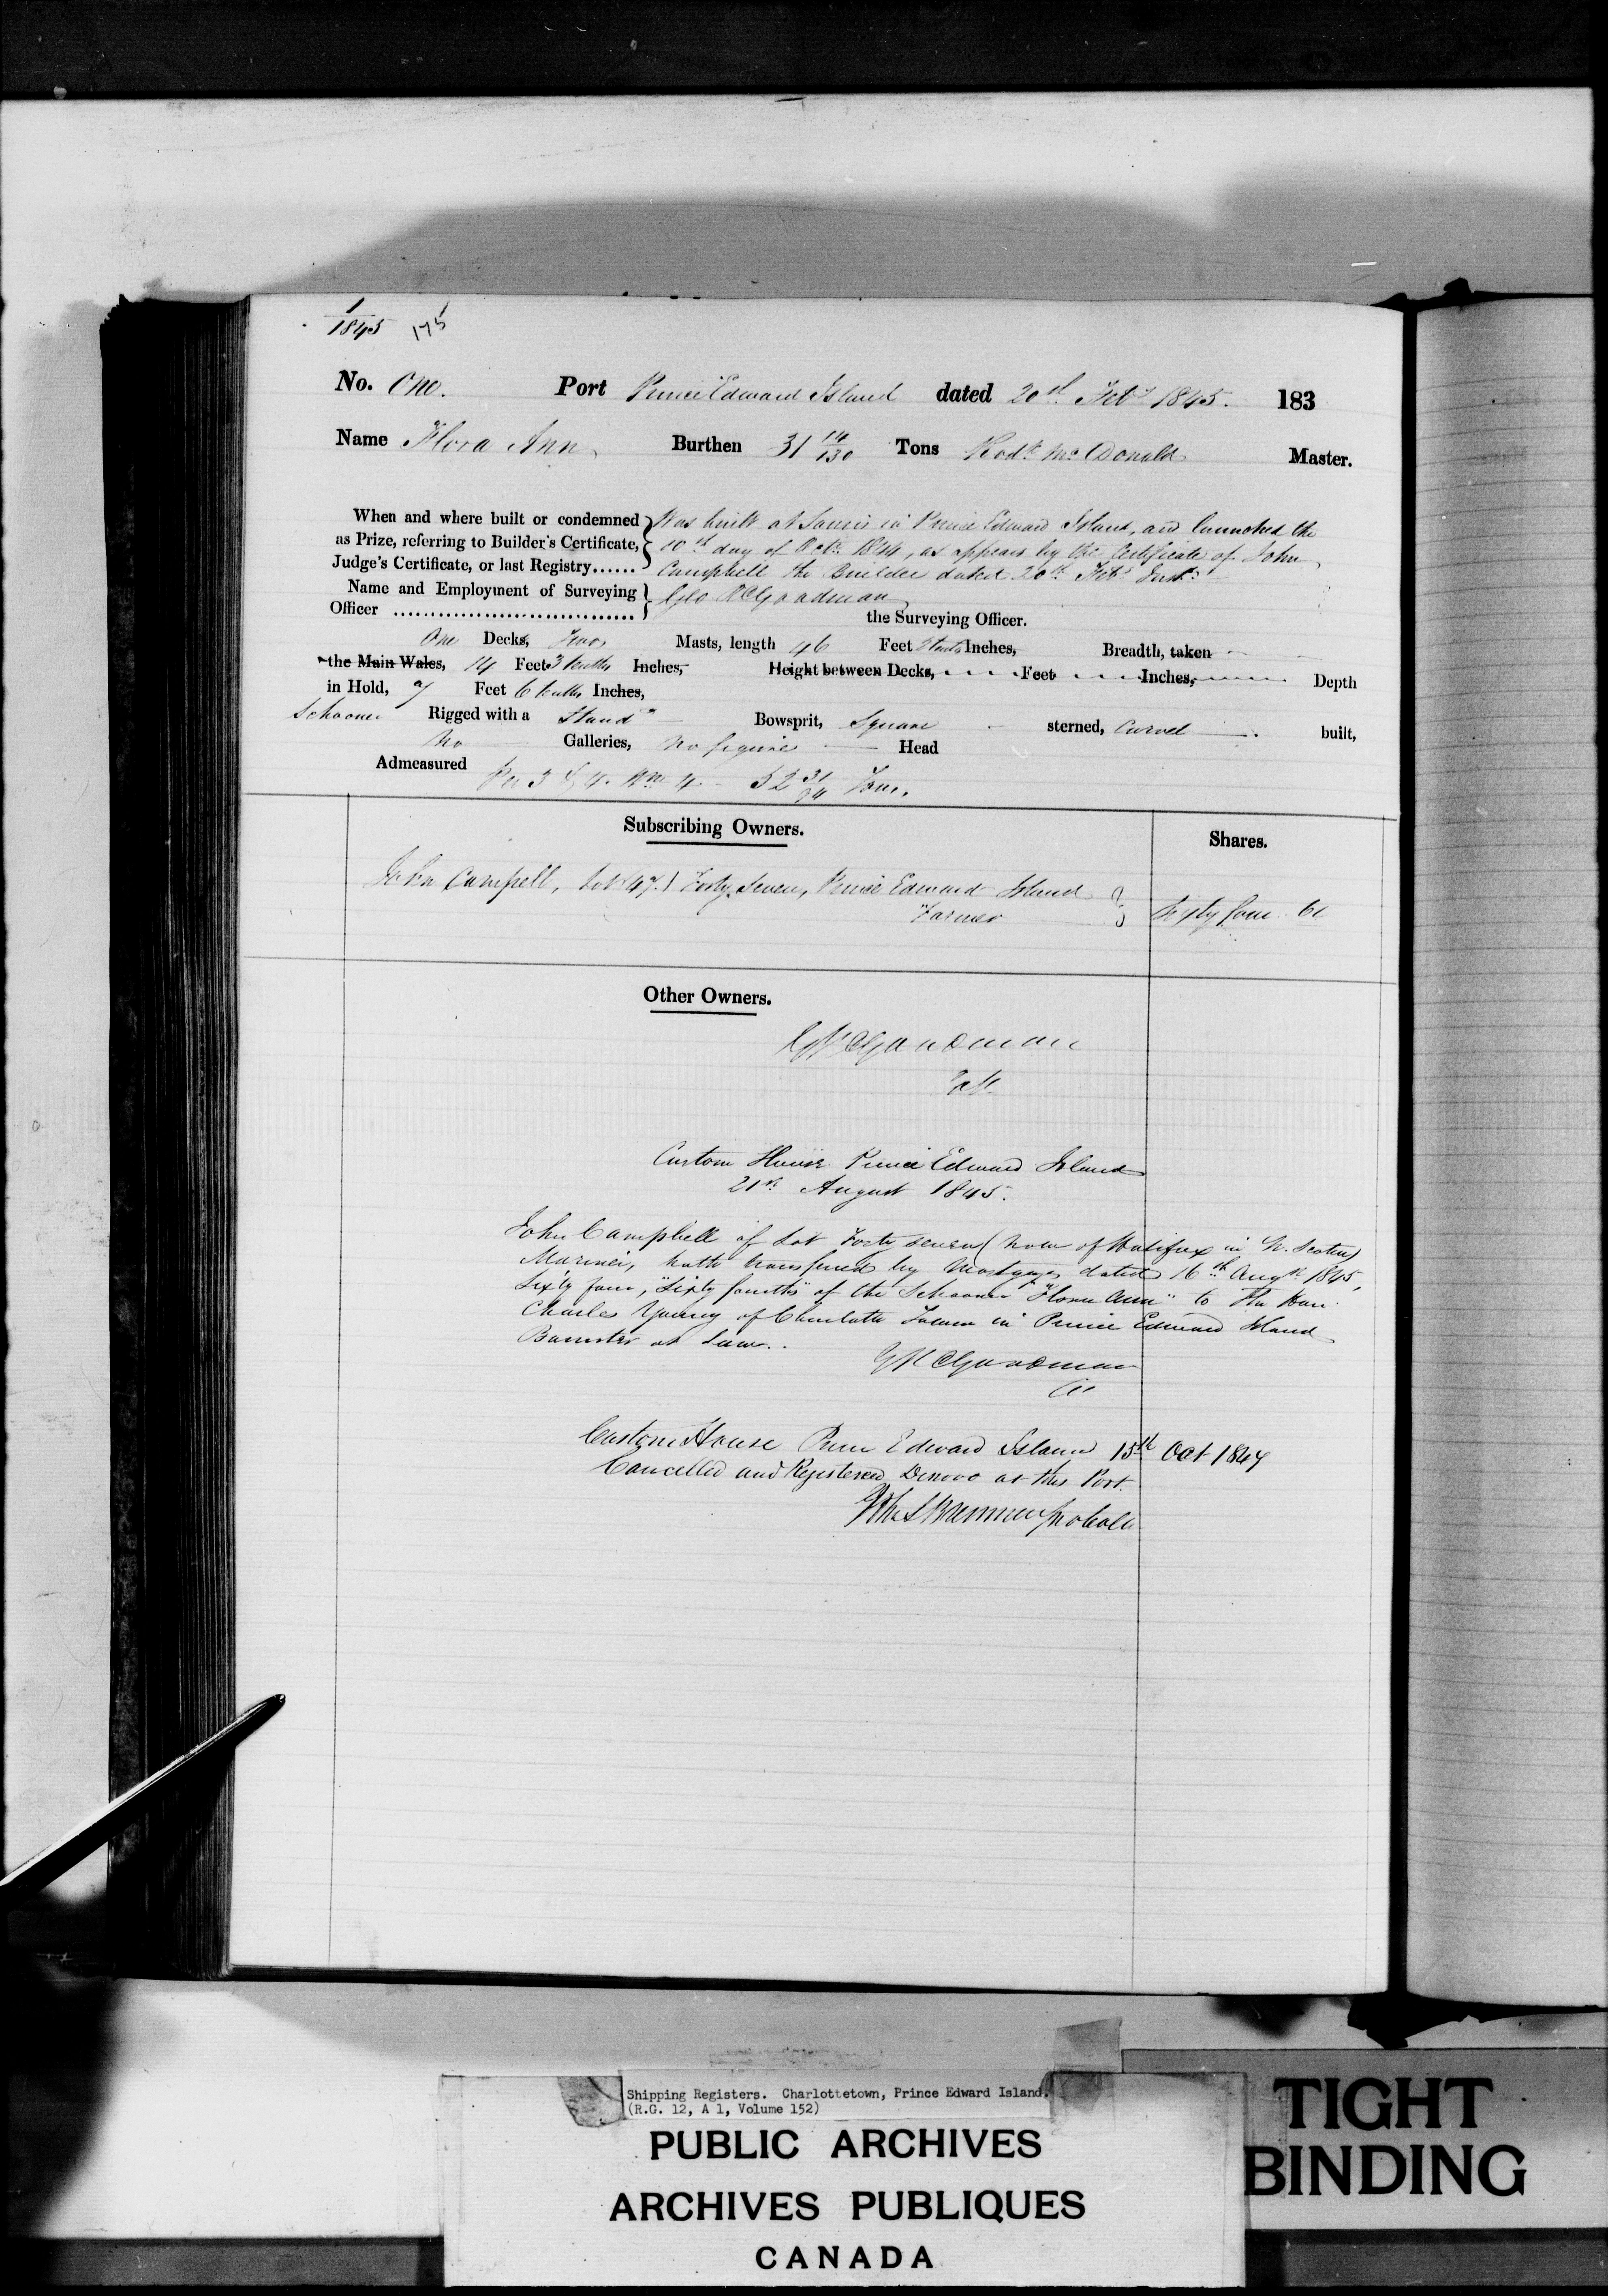 1/1845 175
No. One. Port Prince Edward Island dated 20th Feby 1845. 183
Name Flora Ann Burthen 31 14/130 Tons Rodk McDonald Master.
When and where built or condemned Was built at Souris in Prince Edward Island, and launched the
as Prize, referring to Builder's Certificate, 10th day of Octr 1844, as appears by the Certificate of John
Judge's Certificate, or last Registry...... Campbell the Builder dated 20th Feby Inst
Name and Employment of Surveying Geo R Goodman
Officer ................................ the Surveying Officer.
One Decks, Two Masts, length 46 Feet tenths Inches, Breadth, taken
the Main Wales, 14 Feet 3 tenths Inches, Height between Decks, Feet Inches, Depth
in Hold, 7 Feet 6 tenths Inches,
Schooner Rigged with a Standg Bowsprit, Square sterned, Carvel built,
No Galleries, No figure Head
Admeasured Per 3 & 4 Wm 4 - 32 31/94 Tons.
Subscribing Owners. Shares.
John Campbell, Lot (47) Forty Seven, Prince Edward Island
Farmer Sixty four 64
Other Owners.
G R Goodman
Custom House Prince Edward Island
21st August 1845.
John Campbell of Lot Forty seven (now of Halifax in N. Scotia)
Mariner, hath transferred by Mortgage, dated 16th Augst 1845,
Sixty four, "Sixty fourths" of the Schooner "Flora Ann" to The Hon.
Charles Young of Charlotte Town in Prince Edward Island
Barrister at Law.
G R Goodman
Custom House Prince Edward Island 15th Oct 1847
Cancelled and Registered Denovo at this Port.
Shipping Registers. Charlottetown, Prince Edward Island.
(R.G. 12, A 1, Volume 152)
PUBLIC ARCHIVES
ARCHIVES PUBLIQUES
CANADA
TIGHT
BINDING